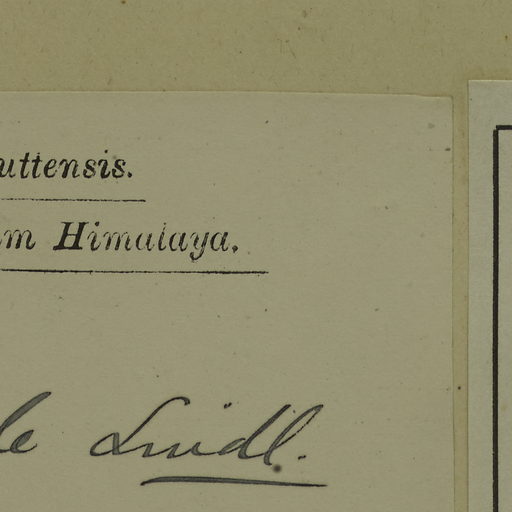 uttensis.
m Himalaya.
le Lindl.